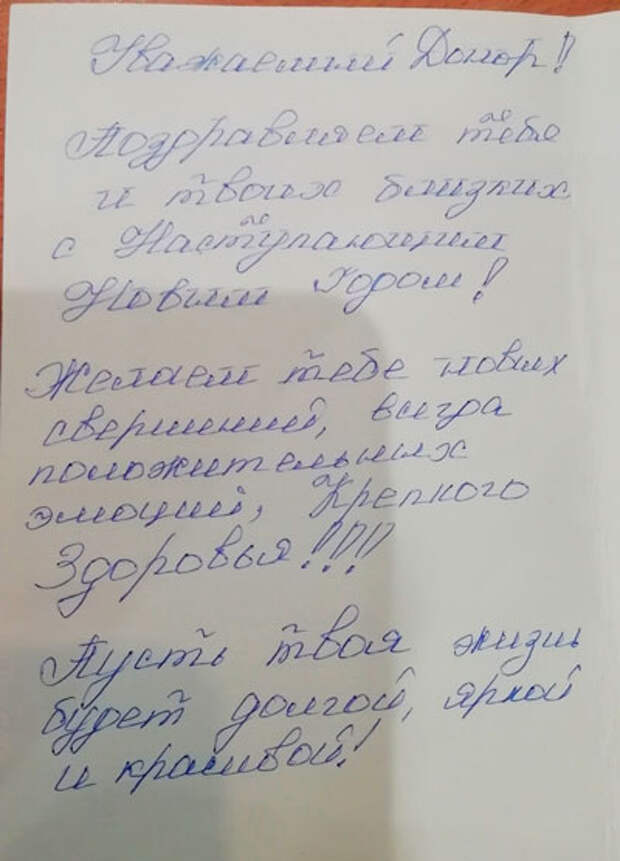 Уважаемый Донор!!
Поздравляем тебя
и твоих близких
с Наступающим
Новым Годом!
Желаем тебе новых
свершений, вихра
положительных
эмоций, Крепкого
Здоровья!!!!
Пусть твоя жизнь
будет долгой, яркой
и красивой!